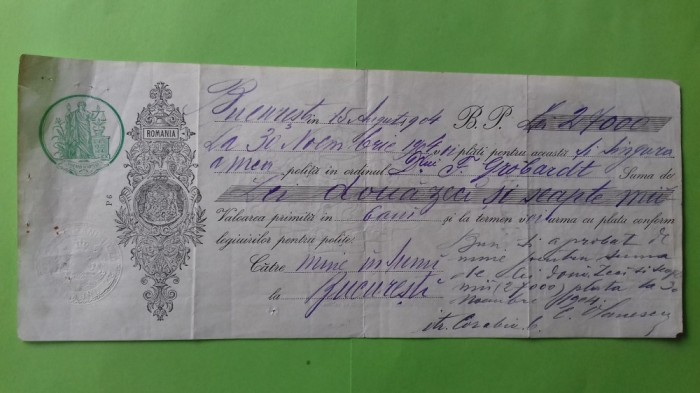 București în 15 August 904 B. P. Lei 27000
ROMANIA
La 30 Noembrie 1904 voi plăti pentru aceasta și singura
a mea poliță în ordinul D-lui F. Grobardt Suma de
Lei douăzeci și seapte mii
P 6
Valoarea primită în bani și la termen voi urma cu plata conform
legiuirilor pentru polițe.
Către mine însumi
la București
Bun și aprobat de
mine pentru suma
de lei douăzeci și seapte
mii (27000) plata la 30
Noembrie 1904
str. Corabia 6.